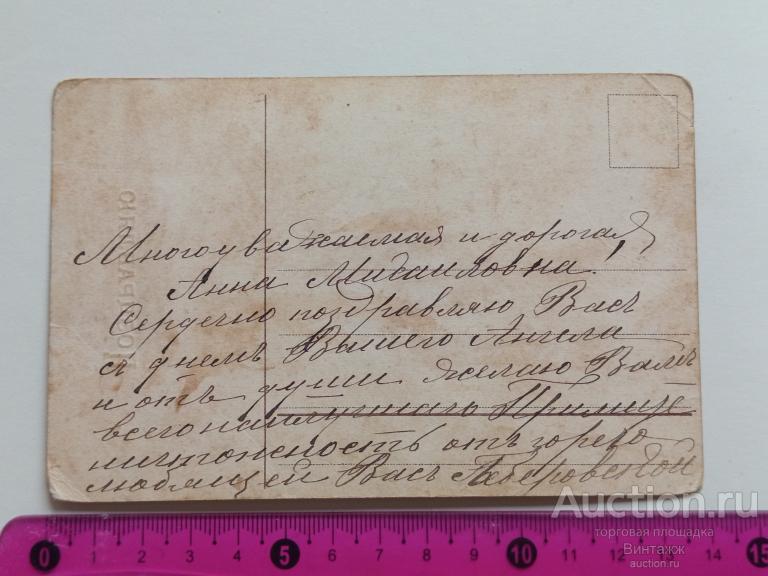 Многоуважаемая и дорогая,
Анна Михаиловна!
Сердечно поздравляю Васъ
съ днемъ Вашего Ангела
и отъ души желаю Вамъ
всего наилучшаго Примите
ничтожность отъ горячо
любящей Васъ
0 1 2 3 4 5 6 7 8 9 10 11 12 13 14 15
Auction.ru
торговая площадка
Винтажж
auction.ru